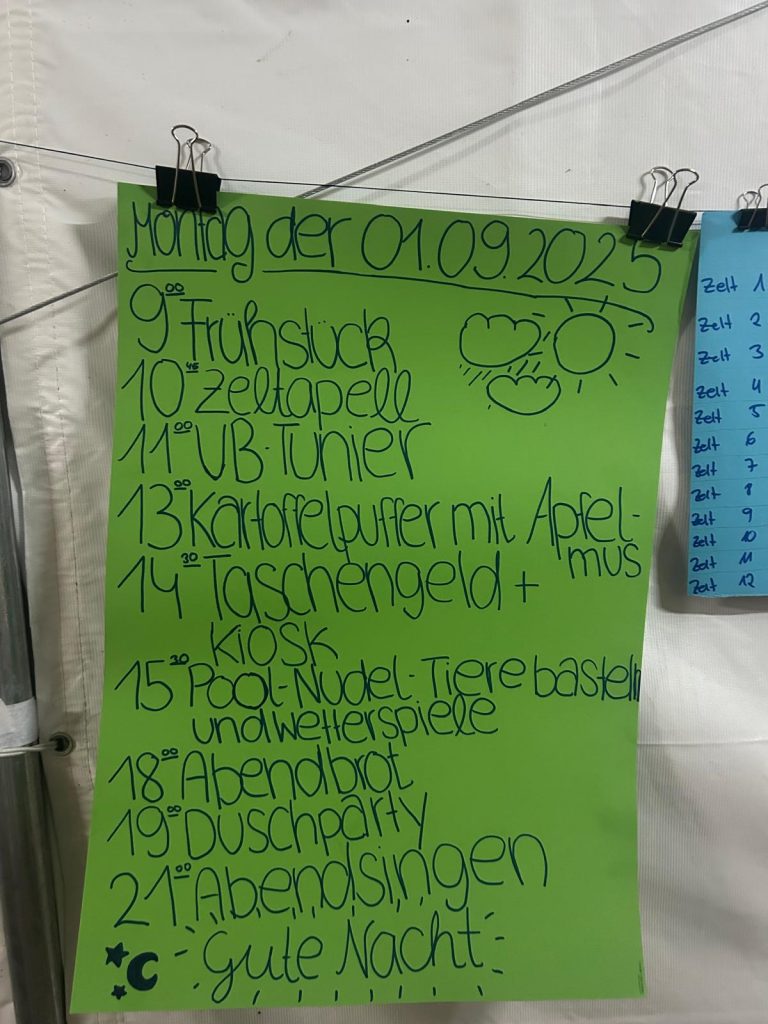 Montag der 01.09.2025
9 00 Frühstück
10 45 Zeltapell
11 00 VB-Tunier
13 00 Kartoffelpuffer mit Apfel-
mus
14 30 Taschengeld +
Kiosk
15 30 Pool-Nudel-Tiere basteln
und Wetterspiele
18 00 Abendbrot
19 00 Duschparty
21 00 Abendsingen
Gute Nacht
Zelt 1
Zelt 2
Zelt 3
Zelt 4
Zelt 5
Zelt 6
Zelt 7
Zelt 8
Zelt 9
Zelt 10
Zelt 11
Zelt 12